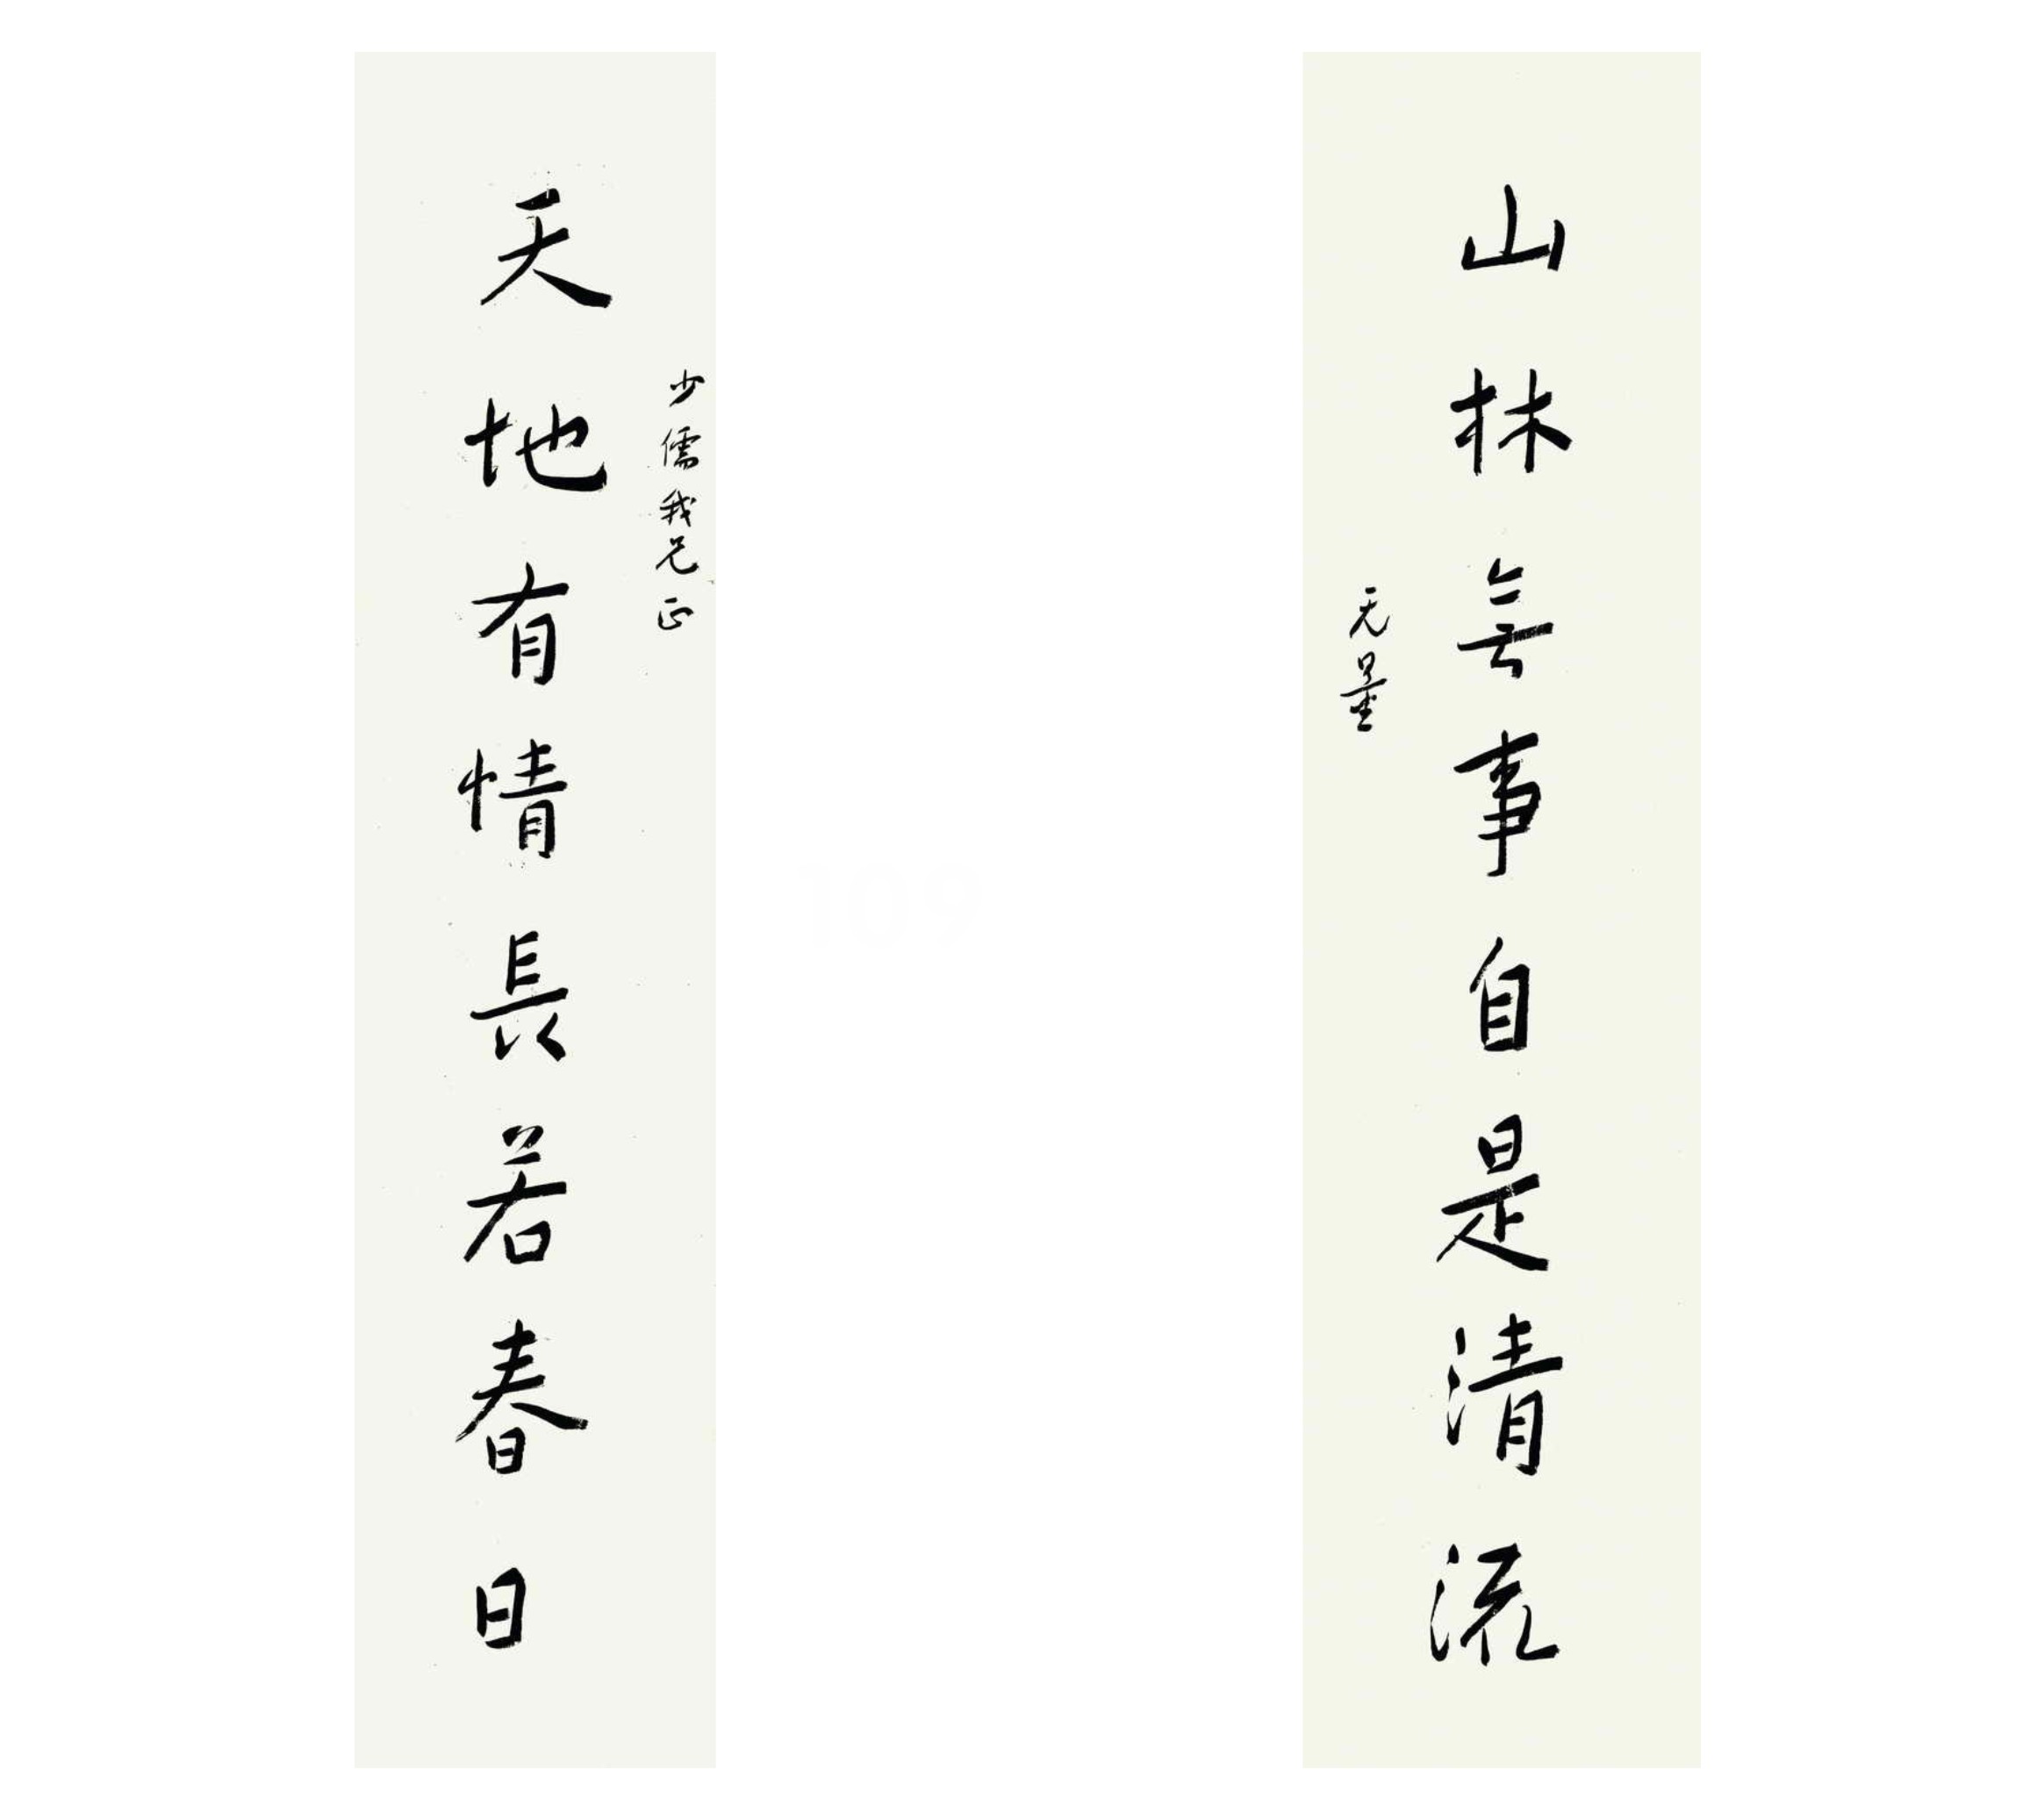 天地有情長若春日
少儒我兄正
山林無事自是清流
无量